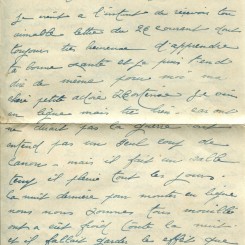 je viens à l'instant de recevoir ton
aimable lettre du 2 courant dont
toujours très heureuse d'apprendre
la bonne santé et je puis t'en
dire de même pour moi ma
chère petite
en ligne mais très bien
ne dirait pas la guerre on
entend pas un seul coup de
canon - mais il fait un sale
temps il pleut tout les jours.
la nuit dernière pour monter en ligne
nous nous sommes tous mouillé
on a eut froid toute la nuit
et il fallait garder les effets que